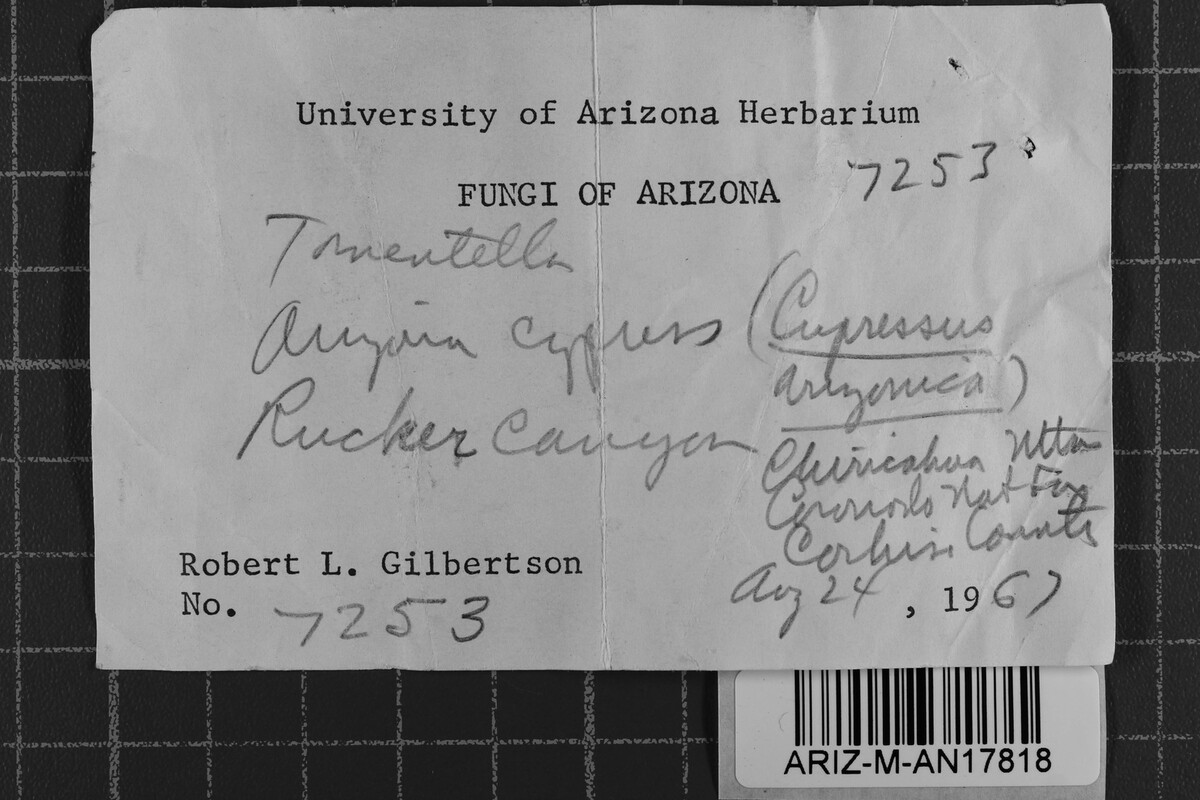 University of Arizona Herbarium
7253
FUNGI OF ARIZONA
Tomentella
Arizona cypress (Cupressus
arizonica)
Rucker Canyon
Chiricahua Mtns
Coronado Nat For
Cochise County
Robert L. Gilbertson
Aug 24, 1967
No. 7253
ARIZ-M-AN17818